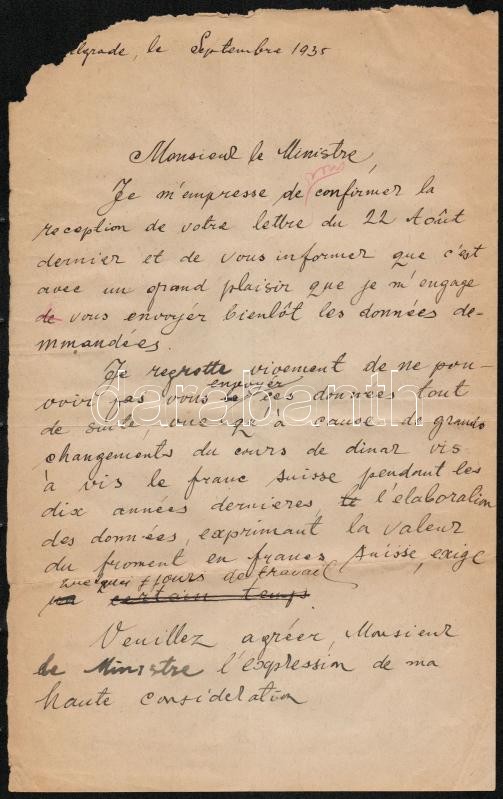 elgrade, le Septembre 1935
Monsieur le Ministre,
vous
Je m'empresse de confirmer la
reception de votre lettre du 22 Août
dernier et de vous informer que c'est
avec un grand plaisir que je m'engage
de vous envoyer bientôt les données de-
mmandées.
Je regrette vivement de ne pou-
envoyer
voir pas vous ces données tout
de suite, à cause de grands
changements du cours de dinar vis
à vis le franc suisse pendant les
dix années dernieres, l'élaboration
des données, exprimant la valeur
du froment en francs Suisse, exige
quelques jours de travail
un certain temps.
Veuillez agréer, Monsieur
le Ministre l'expression de ma
haute consideration
darabanth